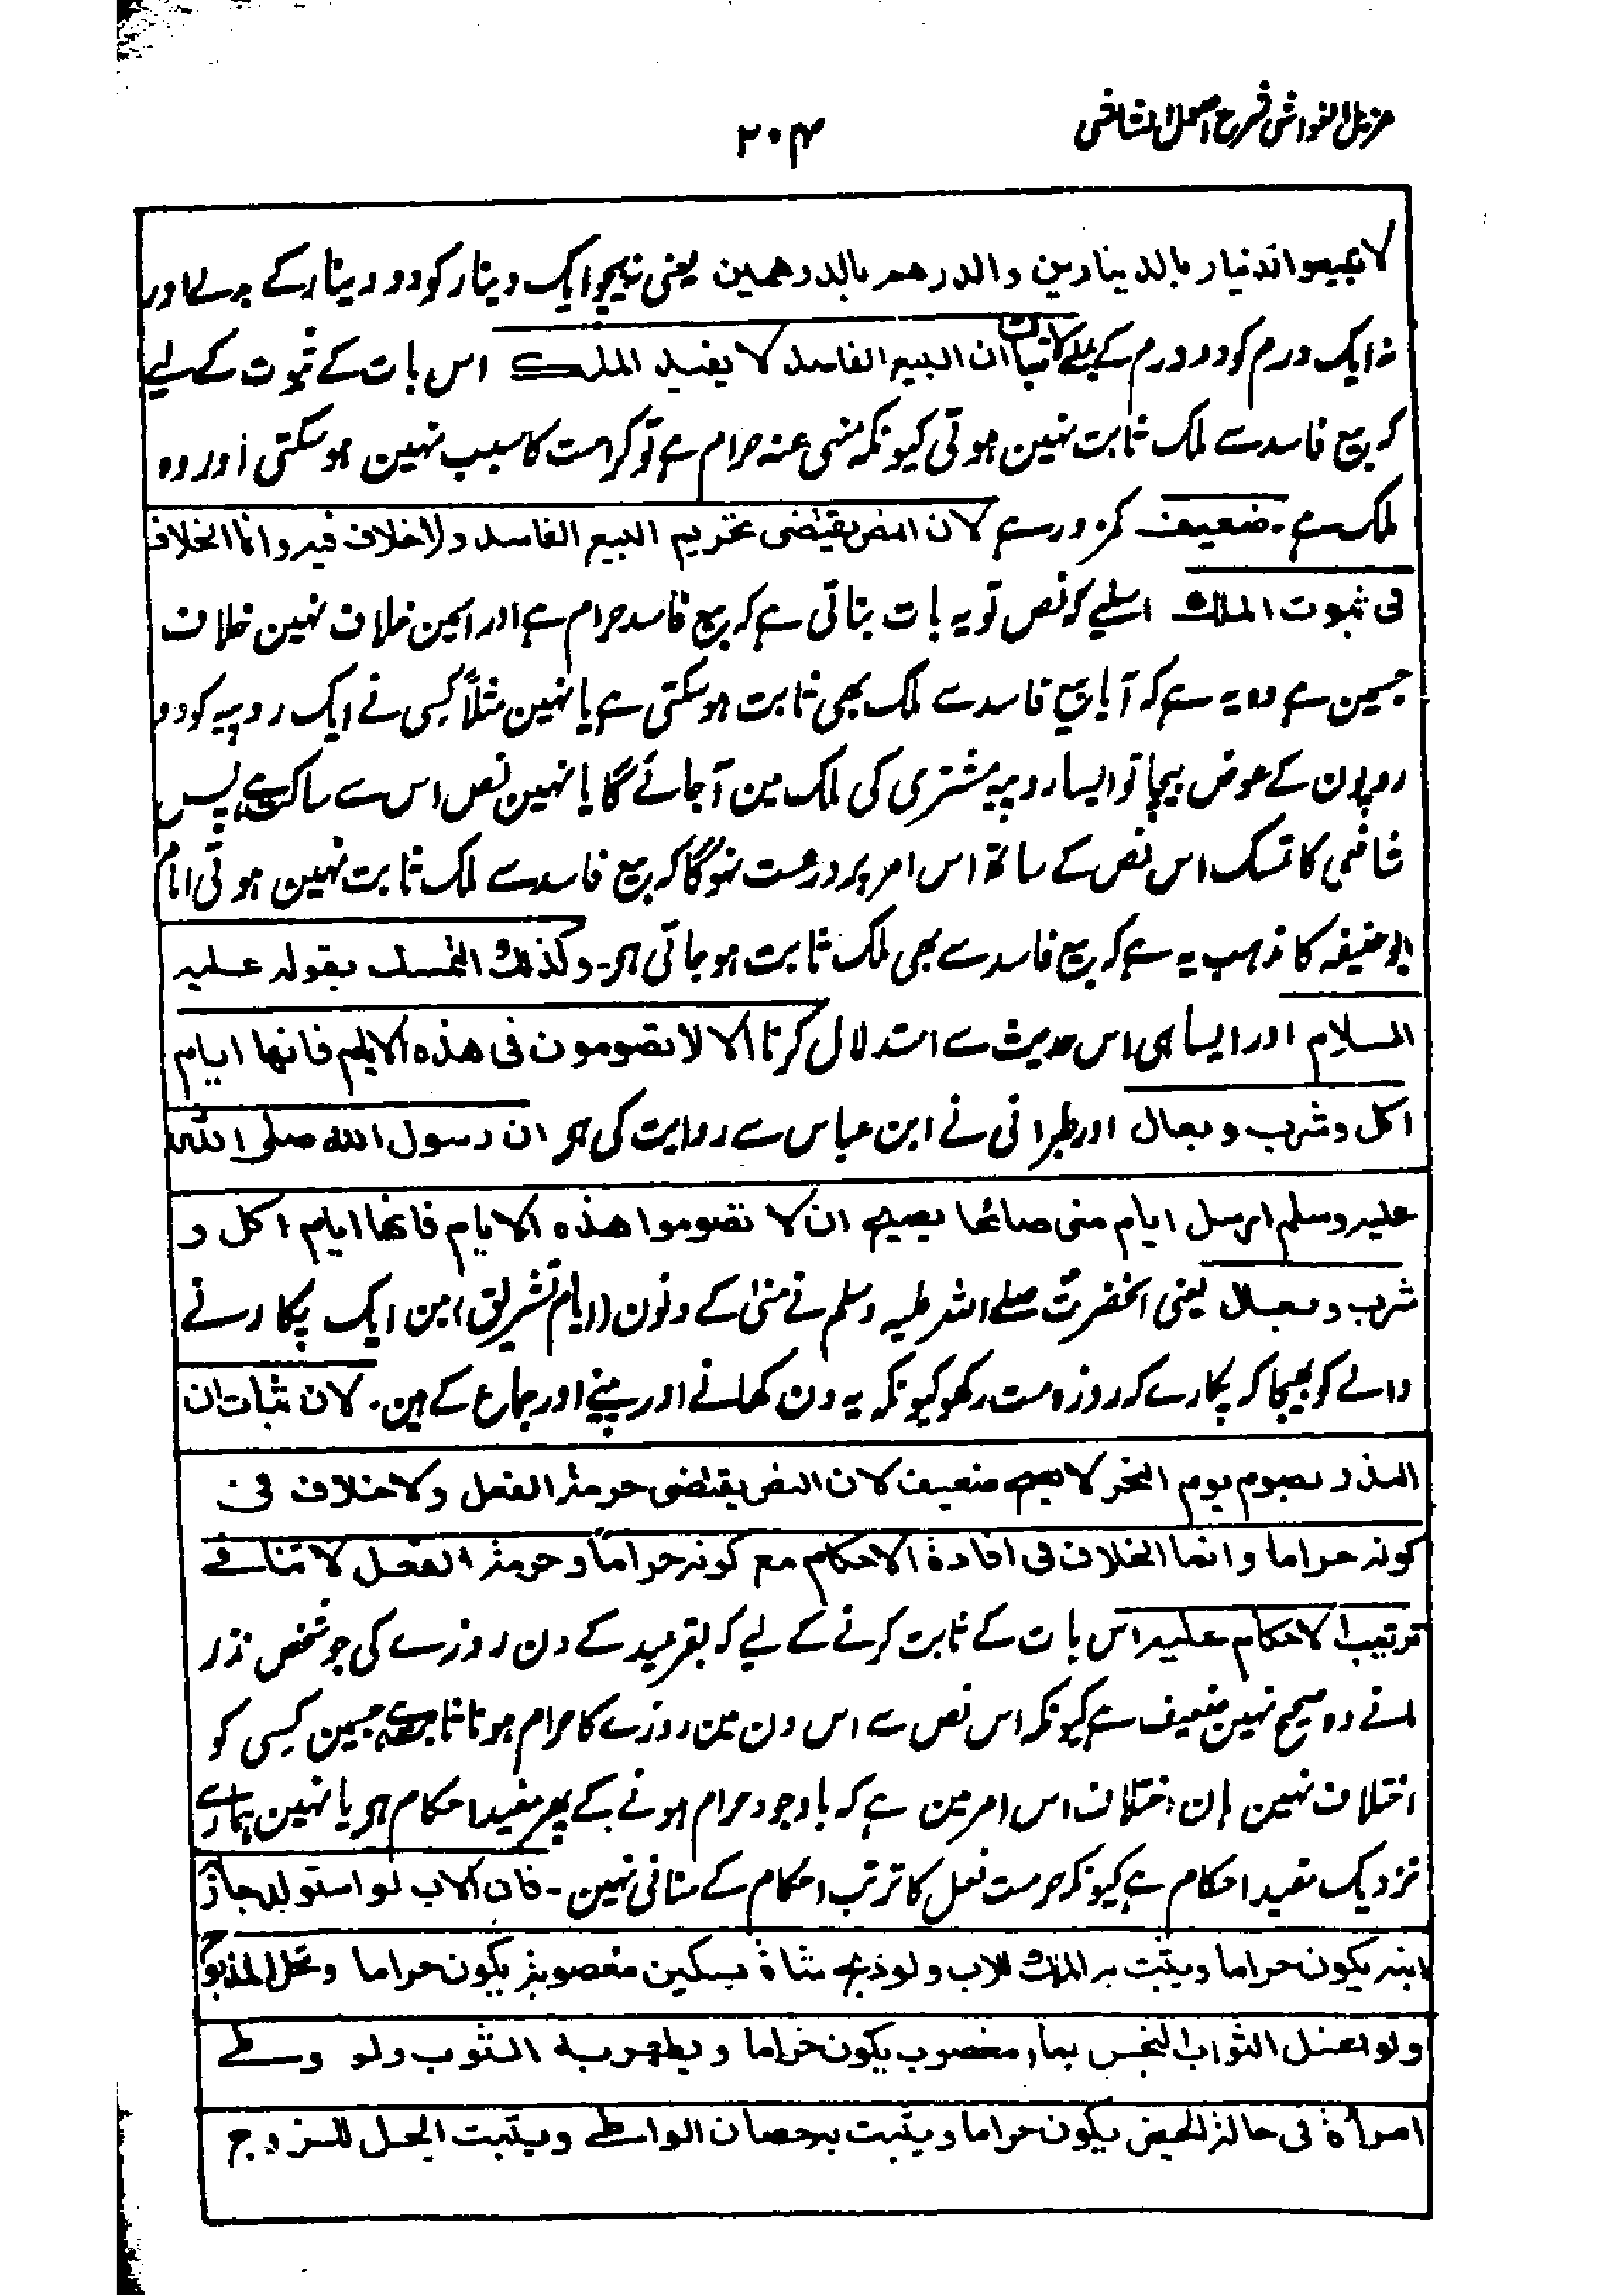 مزیل الغواشی شرح اصول الشاشی
۲۰۴
لا تبیعوا الدنیار بالدینارین والدرهم بالدرهمین یعنی نہ بیچو ایک دینار کو دو دینار کے بدلے اور
نہ ایک درم کو دو درم کے بدلے لاثبات ان البیع الفاسد لا یفید الملک اس بات کے ثبوت کے لیے
کہ بیع فاسد سے ملک ثابت نہین ہوتی کیونکہ منہی عنہ حرام ہے تو کرامت کا سبب نہین ہو سکتی اور وہ
ملک ہے ۔ ضعیف کمزور ہے لان النص یقتضی تحریم البیع الفاسد ولا خلاف فیہ وانما الخلاف
فی ثبوت الملک اسلیے کہ نص تو یہ بات بتاتی ہے کہ بیع فاسد حرام ہے اور اسمین خلاف نہین خلاف
جسمین ہے وہ یہ ہے کہ آیا بیع فاسد سے ملک بھی ثابت ہو سکتی ہے یا نہین مثلاً کسی نے ایک روپیہ کو دو
روپون کے عوض بیچا تو ایسا روپیہ مشتری کی ملک مین آ جائے گا یا نہین نص اس سے ساکت ہے پس
شافعی کا تمسک اس نص کے ساتھ اس امر پر درست نہوگا کہ بیع فاسد سے ملک ثابت نہین ہوتی امام
ابو حنیفہ کا مذہب یہ ہے کہ بیع فاسد سے بھی ملک ثابت ہو جاتی ہی۔ وکذلک التمسک بقولہ علیہ
السلام اور ایسا ہی اس حدیث سے استدلال کرنا الا لا تصومون فی هذه الایام فانها ایام
اکل وشرب وبعال اور طبرانی نے ابن عباس سے روایت کی ہی ان رسول الله صلی الله
علیہ وسلم ارسل ایام منی صائحا یصیح ان لا تصوموا هذه الایام فانها ایام اکل و
شرب وبعال یعنی آنحضرتؐ صلے اللہ علیہ وسلم نے منیٰ کے دنون (ایام تشریق) مین ایک پکارنے
والے کو بھیجا کہ پکارے کہ روزہ مت رکھو کیونکہ یہ دن کھانے اور پینے اور جماع کے ہین۔ لاثبات ان
النذر بصوم یوم النحر لا یصح ضعیف لان النص یقتضی حرمۃ الفعل ولا خلاف فی
کونہ حراما وانما الخلاف فی افادۃ الاحکام مع کونہ حراماً وحرمۃ الفعل لا تنافی
ترتیب الاحکام علیہ اس بات کے ثابت کرنے کے لیے کہ بقرعید کے دن روزے کی جو شخص نذر
مانے وہ صحیح نہین ضعیف ہے کیونکہ اس نص سے اس دن مین روزے کا حرام ہونا ثابت ہے جسمین کسی کو
اختلاف نہین ہان اختلاف اس امر مین ہے کہ باوجود حرام ہونے کے پھر مفید احکام ہی یا نہین ہمارے
نزدیک مفید احکام ہے کیونکہ حرمت فعل کا ترتب احکام کے منافی نہین ۔ فان الاب لو استولد جاریۃ
ابنہ یکون حراما ویثبت بہ الملک للاب ولو ذبح شاۃ بسکین مغصوبۃ یکون حراما ویحل المذبوح
ولو غسل الثواب النجس بماء مغصوب یکون حراما ویطهر بہ الثوب ولو وطئ
امرأۃ فی حالۃ الحیض یکون حراما ویثبت بہ حصان الواطئ ویثبت الحل للزوج